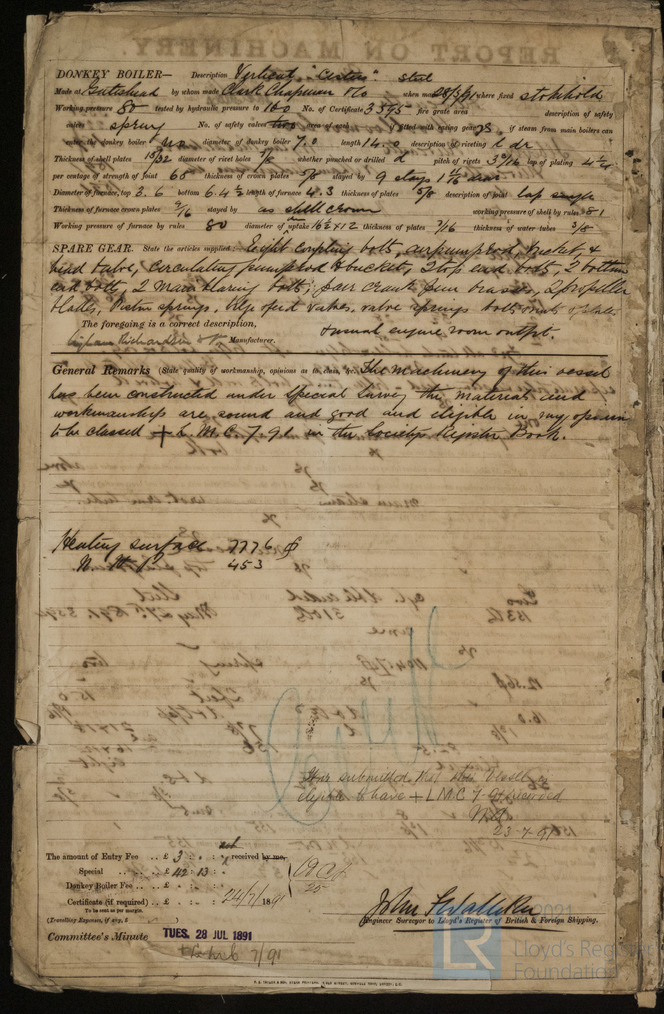 DONKEY BOILER— Description Vertical steel
Made at Gateshead by whom made Clark Chapman & Co when made 28/3/91 where fixed stokehold
Working pressure 80 tested by hydraulic pressure to 160 No. of Certificate 3395 fire grate area description of safety
valves spring No. of safety valves two area of each fitted with easing gear yes if steam from main boilers can
enter the donkey boiler no diameter of donkey boiler 7.0 length 14.0 description of riveting l dr
Thickness of shell plates 15/32 diameter of rivet holes whether punched or drilled d pitch of rivets 3 3/16 lap of plating 4 1/2
per centage of strength of joint 65 thickness of crown plates 5/8 stayed by 9 stays 1 1/16 diar
Diameter of furnace, top 5.6 bottom 6.4 1/2 length of furnace 4.3 thickness of plates 5/8 description of joint lap single
Thickness of furnace crown plates 9/16 stayed by as shell crown working pressure of shell by rules 81
Working pressure of furnace by rules 80 diameter of uptake 16 1/2 x 12 thickness of plates 7/16 thickness of water tubes 3/8
SPARE GEAR. State the articles supplied:— Eight coupling bolts, air pump rod, bucket &
head valve, circulating pump rod & bucket, 2 top end bolts, 2 bottom
end bolts, 2 main bearing bolts, pair crank pin brasses, 2 propeller
blades, piston springs, feed valves, valve springs bolts nuts
& usual engine room outfit.
The foregoing is a correct description,
Wigham Richardson & Co Manufacturer.
General Remarks (State quality of workmanship, opinions as to class, &c. The machinery of this vessel
has been constructed under Special Survey the materials and
workmanship are sound and good and eligible in my opinion
to be classed + L.M.C. 7.91 in the Society's Register Book.
Heating surface 7776
N.H.P. 453
It is submitted that this vessel is
eligible to have + LMC 7.91 recorded
23.7.91
The amount of Entry Fee .. £ 3 : : received by me,
Special .. .. £ 42 : 13 :
Donkey Boiler Fee .. .. £ : :
Certificate (if required) .. £ : : 24/7/1891
To be sent as per margin.
(Travelling Expenses, if any, £ )
Engineer Surveyor to Lloyd's Register of British & Foreign Shipping.
Committee's Minute TUES. 28 JUL 1891
7/91
2021
LR Lloyd's Register
Foundation
REPORT ON MACHINERY.